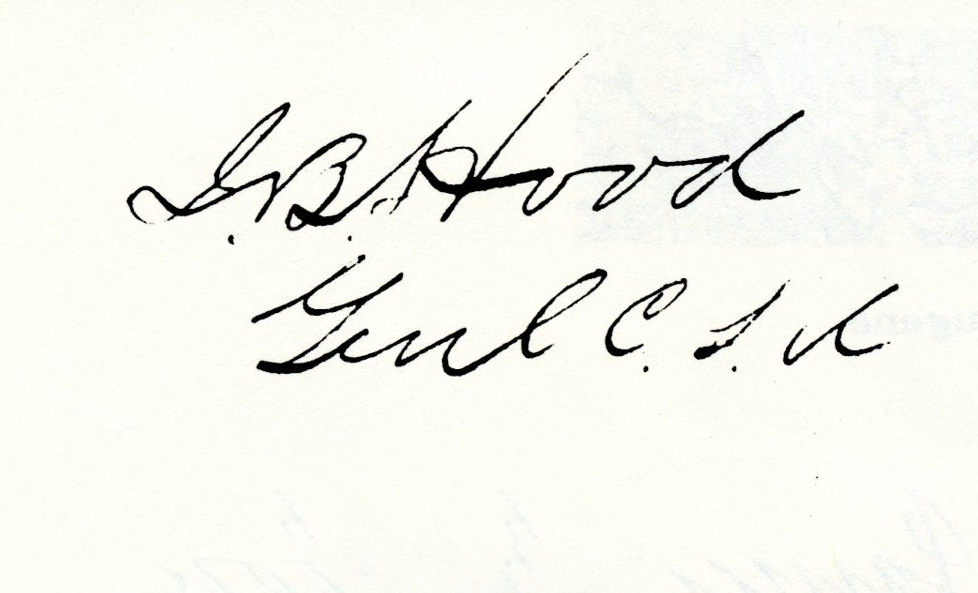 J. B. Hood
Genl C. S. A.